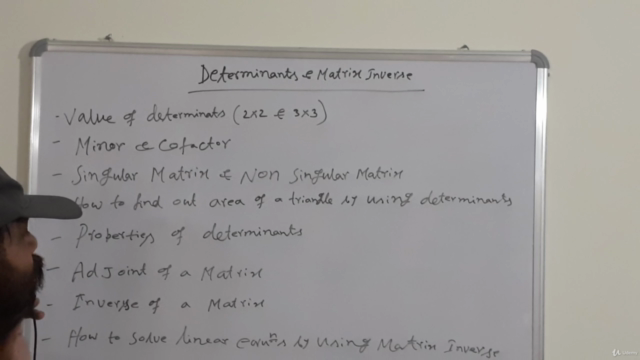 Determinants & Matrix Inverse
- Value of determinats (2×2 & 3×3)
- Minor & Cofactor
- Singular Matrix & Non Singular Matrix
How to find out area of a triangle by using determinants
- Properties of determinants
- Adjoint of a Matrix
- Inverse of a Matrix
- How to solve linear equⁿs by using Matrix Inverse